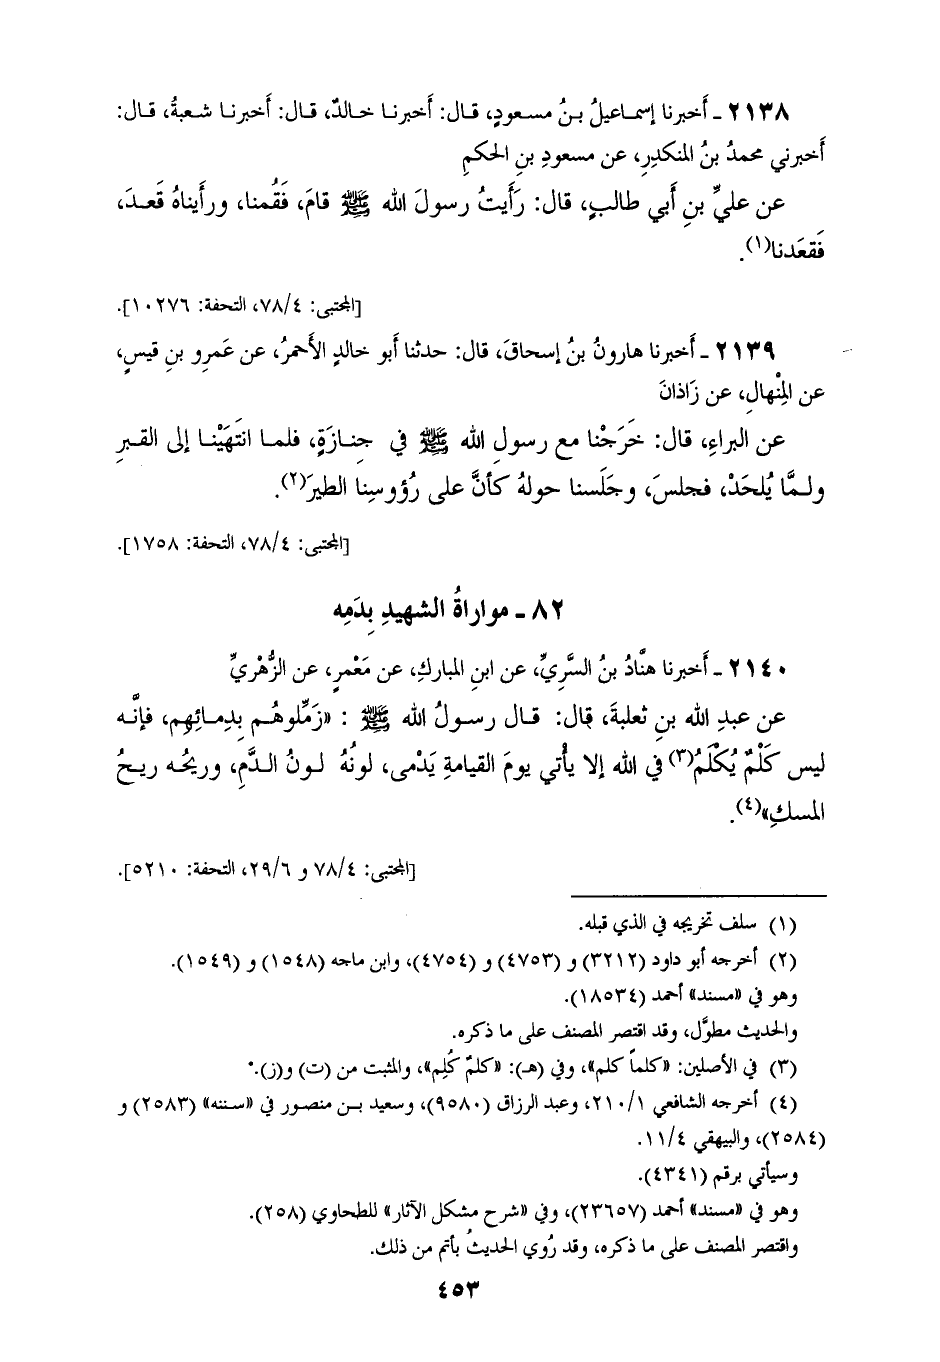 ٢١٣٨ ـ أَخبرنا إسماعيلُ بـنُ مسـعودٍ، قـال: أَخبرنـا خـالدٌ، قـال: أَخبرنـا شـعبةُ، قـال:
أَخبرني محمدُ بنُ المنكدِرِ، عن مسعودِ بنِ الحكمِ
عن عليِّ بنِ أَبي طالبٍ، قال: رَأَيتُ رسولَ الله ﷺ قامَ، فَقُمنا، ورأَيناهُ قَعـدَ،
فَقعَدنا(١).
[المجتبى: ٧٨/٤، التحفة: ١٠٢٧٦].
٢١٣٩ ـ أَخبرنا هارونُ بنُ إسحاقَ، قال: حدثنا أَبو خالدٍ الأَحمرُ، عن عَمرِو بنِ قيسٍ،
عن المِنْهالِ، عن زَاذانَ
عن البراءِ، قال: خَرَجْنا مع رسولِ الله ﷺ في جِنـازَةٍ، فلمـا انتَهَيْنـا إلى القـبرِ
ولـمَّا يُلحَدْ، فجلسَ، وجَلَسنا حولهُ كأنَّ على رُؤوسِنا الطيرَ(٢).
[المجتبى: ٧٨/٤، التحفة: ١٧٥٨].
٨٢ ـ مواراةُ الشهيدِ بِدَمِه
٢١٤٠ ـ أَخبرنا هنَّادُ بنُ السَّرِيِّ، عن ابنِ المباركِ، عن مَعْمرٍ، عن الزُّهْريِّ
عن عبدِ الله بنِ ثعلبةَ، قال: قـال رسـولُ الله ﷺ : «زَمِّلوهُـم بِدِمـائِهِم، فإنَّـه
ليس كَلْمٌ يُكْلَمُ(٣) في الله إلا يأْتي يومَ القيامةِ يَدْمى، لونُهُ لـونُ الـدَّمِ، وريحُـه ريـحُ
المسكِ»(٤).
[المجتبى: ٧٨/٤ و ٢٩/٦، التحفة: ٥٢١٠].
(١) سلف تخريجه في الذي قبله.
(٢) أخرجه أبو داود (٣٢١٢) و (٤٧٥٣) و (٤٧٥٤)، وابن ماجه (١٥٤٨) و (١٥٤٩).
وهو في «مسند» أحمد (١٨٥٣٤).
والحديث مطوَّل، وقد اقتصر المصنف على ما ذكره.
(٣) في الأصلين: «كلماً كلم»، وفي (هـ): «كلمٌ كُلِم»، والمثبت من (ت) و(ز).
(٤) أخرجه الشافعي ٢١٠/١، وعبد الرزاق (٩٥٨٠)، وسعيد بـن منصـور في «سـننه» (٢٥٨٣) و
(٢٥٨٤)، والبيهقي ١١/٤.
وسيأتي برقم (٤٣٤١).
وهو في «مسند» أحمد (٢٣٦٥٧)، وفي «شرح مشكل الآثار» للطحاوي (٢٥٨).
واقتصر المصنف على ما ذكره، وقد رُوي الحديثُ بأتم من ذلك.
٤٥٣